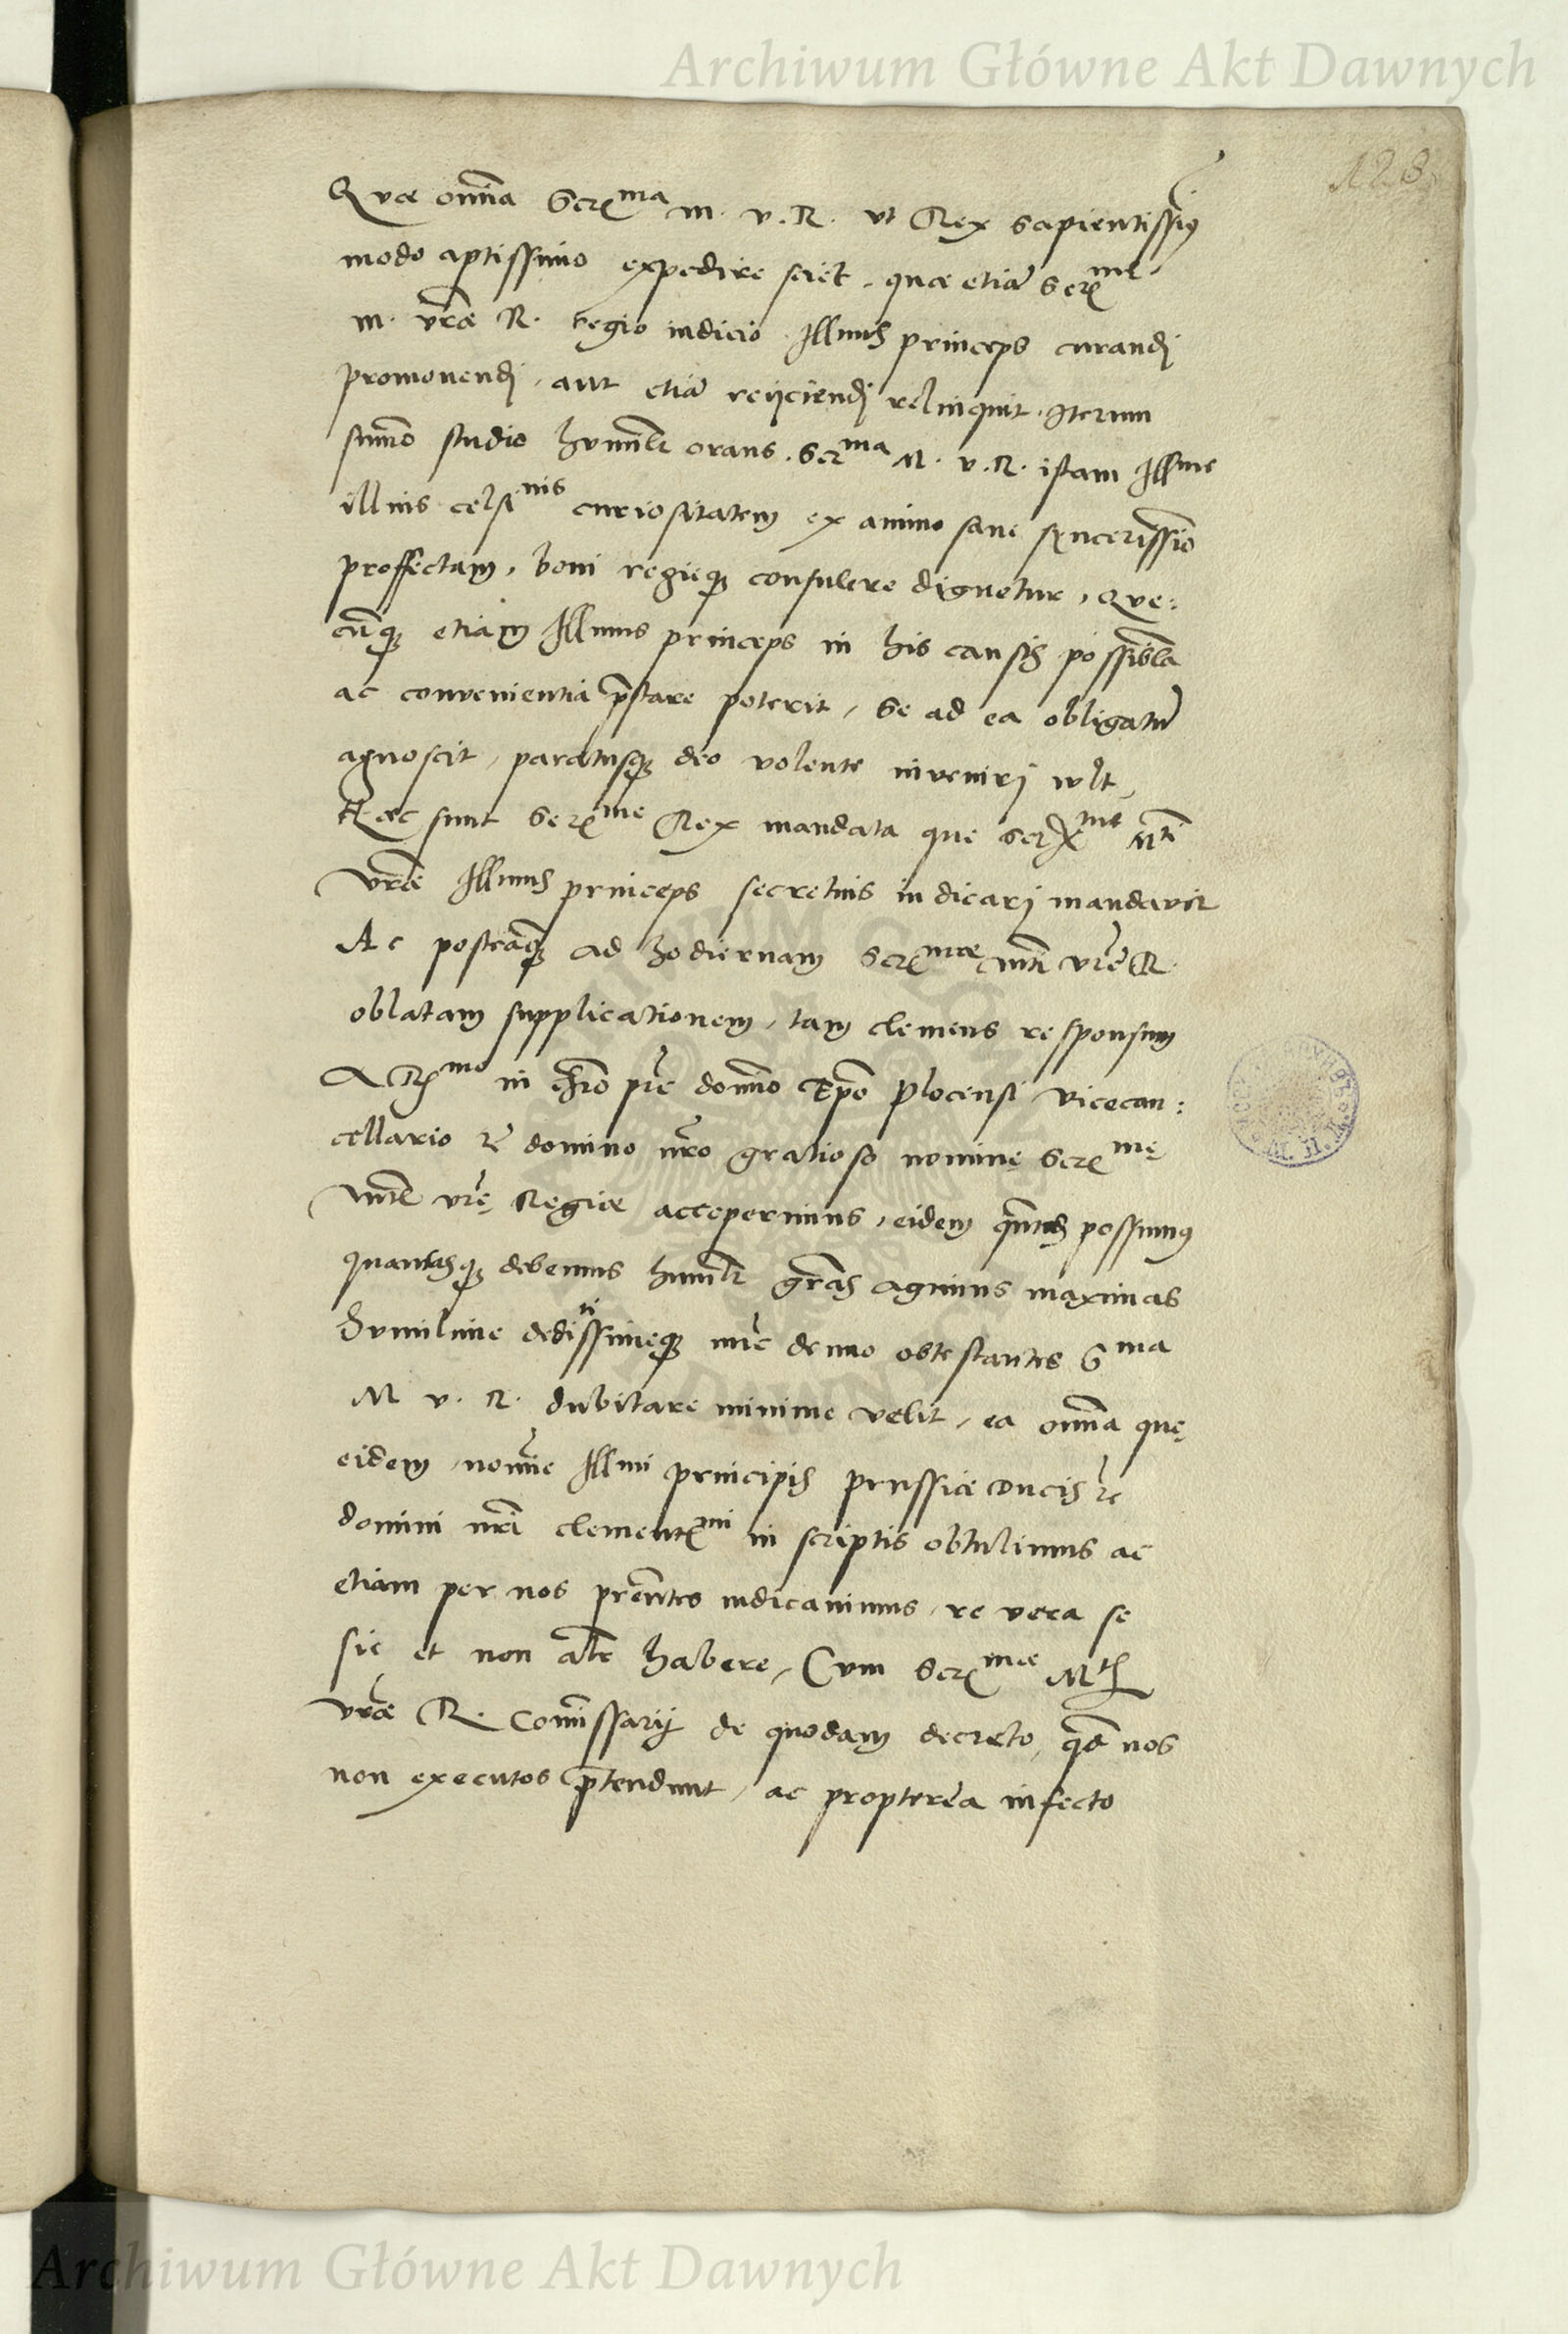 Archiwum Główne Akt Dawnych
128
Quæ om̃ia Serᵐᵃ m. v. R. vt Rex sapientissi9
modo aptissimo expedire sciet, quæ etiã Serᵐᵉ
m. vr̃æ R. regio iudicio Illmus princeps curandj
promouendj, aut etiã reijciendj relinquit. Iterum
sum̃o studio humilr̃ orans. Serᵐᵃ M. v. R. istam Illme
illius celsⁿⁱˢ curiositatem ex animo sane syncerissĩo
proffectam, boni regieq3 consulere dignetur, Que:
cũq3 etiam Illmus princeps in his causis possibĩla
ac conuenientia p̃stare poterit, Se ad ea obligatũ
agnoscit, paratusq3 deo volente inuenirj vult,
Hæc sunt Serᵐᵉ Rex mandata que Serᵐᵉ Mti
vr̃æ Illmus princeps secretius indicarj mandauit
Ac posteaq̃3 ad hodiernam Serᵐᵃᵉ mti vr̃e R.
oblatam supplicationem, tam clemens responsum
A Rᵐᵒ in chr̃o pr̃e domĩo Ep̃o Plocensi vicecan:
cellario ꝛc̃ domino nr̃o gratioso nomine Serᵐᵉ
mtis vr̃ę Regiæ acceperimus, eidem quñtas possumus
quantasq3 debemus humilr̃ gr̃as agimus maximas
Humilime deditissimeq3 nũc denuo obtestantes Sᵐᵃ
M v. R. dubitare minime velit, ea om̃ia quę
eidem, nomĩe Illmi principis Prussiæ Ducis ꝛc̃
domini nr̃i clementᵐⁱ in scriptis obtulimus ac
etiam per nos præñtes indicauimus, re vera se
sic et non alr̃ habere, Cum Serᵐᵃᵉ Mtis
vr̃æ R. Com̃issarij de quodam decreto, qd̃ nos
non executos p̃tendunt, ac propterea infecto
Archiwum Główne Akt Dawnych